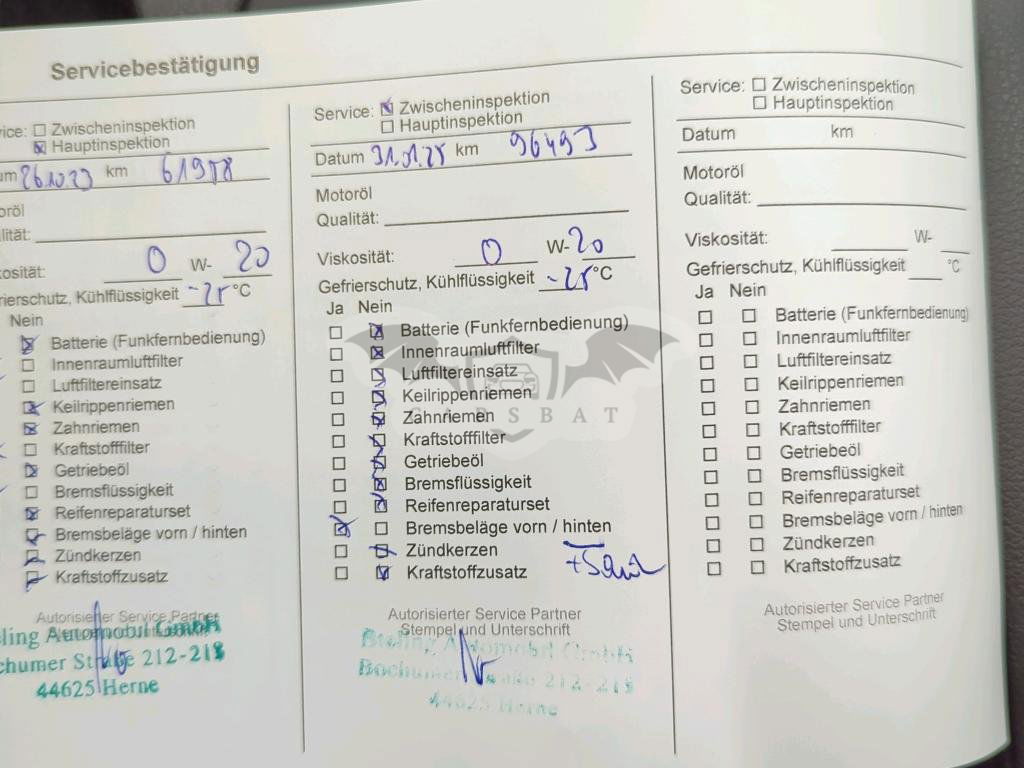 Servicebestätigung
ice: Zwischeninspektion
Hauptinspektion
um 26.10.23 km 61958
oröl
lität:
kosität: 0 W- 20
rierschutz, Kühlflüssigkeit -25 °C
Nein
Batterie (Funkfernbedienung)
Innenraumluftfilter
Luftfiltereinsatz
Keilrippenriemen
Zahnriemen
Kraftstofffilter
Getriebeöl
Bremsflüssigkeit
Reifenreparaturset
Bremsbeläge vorn / hinten
Zündkerzen
Kraftstoffzusatz
Autorisierter Service Partner
ling Automobil GmbH
chumer Straße 212-218
44625 Herne
Service: Zwischeninspektion
Hauptinspektion
Datum 31.01.25 km 96493
Motoröl
Qualität:
Viskosität: 0 W- 20
Gefrierschutz, Kühlflüssigkeit -25 °C
Ja Nein
Batterie (Funkfernbedienung)
Innenraumluftfilter
Luftfiltereinsatz
Keilrippenriemen
Zahnriemen
Kraftstofffilter
Getriebeöl
Bremsflüssigkeit
Reifenreparaturset
Bremsbeläge vorn / hinten
Zündkerzen
Kraftstoffzusatz
Autorisierter Service Partner
Stempel und Unterschrift
Automobil GmbH
Bochumer Straße 212-218
44625 Herne
Service: Zwischeninspektion
Hauptinspektion
Datum km
Motoröl
Qualität:
Viskosität: W-
Gefrierschutz, Kühlflüssigkeit °C
Ja Nein
Batterie (Funkfernbedienung)
Innenraumluftfilter
Luftfiltereinsatz
Keilrippenriemen
Zahnriemen
Kraftstofffilter
Getriebeöl
Bremsflüssigkeit
Reifenreparaturset
Bremsbeläge vorn / hinten
Zündkerzen
Kraftstoffzusatz
Autorisierter Service Partner
Stempel und Unterschrift
CARSBAT